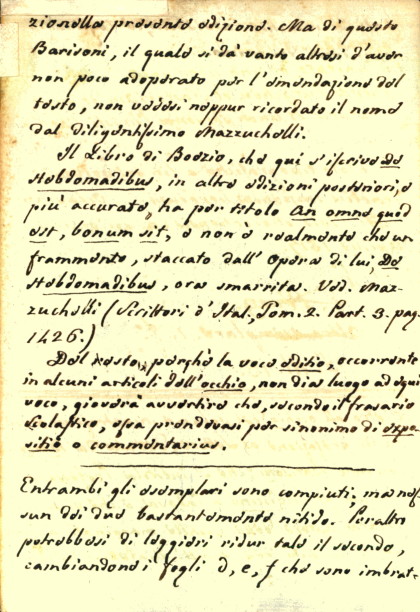 zione nella presente edizione. Ma di questo
Barisoni, il quale si dà vanto altresì d'aver
non poco adoperato per l'emendazione del
testo, non vedesi neppur ricordato il nome
dal diligentissimo Mazzuchelli.
Il Libro di Boezio, che qui s'iscrive De
Hebdomadibus, in altre edizioni posteriori, e
più accurate, ha per titolo An omne quod
est, bonum sit, e non è realmente che un
frammento, staccato dall'Opera di lui, De
Hebdomadibus, ora smarrita. Ved. Maz-
zuchelli (Scrittori d'Ital., Tom. 2. Part. 3. pag.
1426.)
Del resto, perchè la voce editio, occorrente
in alcuni articoli dell'occhio, non dia luogo ad equi
voco, gioverà avvertire che, secondo il frasario
Scolastico, essa prendevasi per sinonimo di expo
sitio o commentarius.
Entrambi gli esemplari sono compiuti; ma nes
sun dei due bastantemente nitido. Peraltro
potrebbesi di leggieri ridur tale il secondo,
cambiandone i fogli d, e, f che sono imbrat-